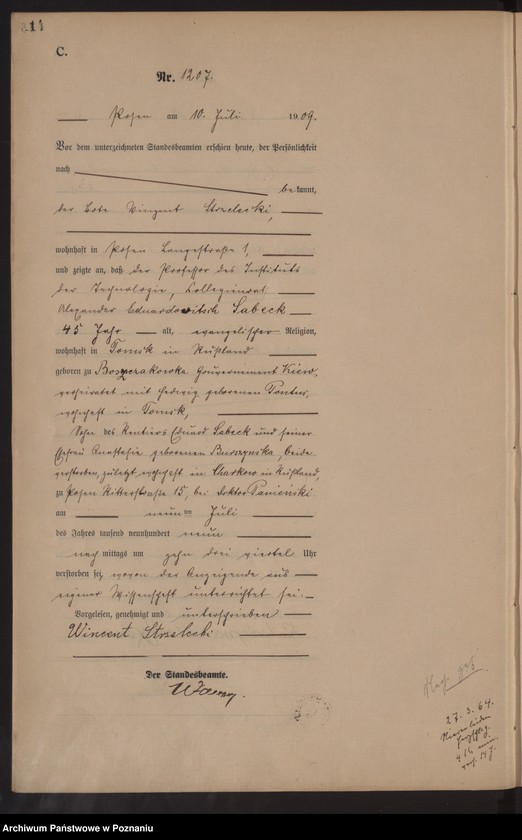 C.
Nr. 1207.
Posen am 10. Juli 1909.
Vor dem unterzeichneten Standesbeamten erschien heute, der Persönlichkeit
nach
bekannt,
der Bote Vinzent Strzelecki,
wohnhaft in Posen Langestraße 1,
und zeigte an, daß der Professor des Instituts
der Technologie, Kollegienrat
Alexander Eduardowitsch Sabeck
45 Jahr alt, evangelischer Religion,
wohnhaft in Tomsk in Rußland
geboren zu Gouvernement Kiew,
verheiratet mit Hedwig geborenen
wohnhaft in Tomsk,
Sohn des Rentiers Eduard Sabeck und seiner
Ehefrau Anastasie geborenen Burzynska, beide
verstorben, zuletzt wohnhaft in Charkow in Rußland,
zu Posen Ritterstraße 15, bei Doktor Panienski
am neunten Juli
des Jahres tausend neunhundert neun
nachmittags um zehn drei viertel Uhr
verstorben sei, wovon der Anzeigende aus
eigener Wissenschaft unterrichtet sei.
Vorgelesen, genehmigt und unterschrieben
Wincent Strzelecki
Der Standesbeamte.
27. 3. 64.
Archiwum Państwowe w Poznaniu